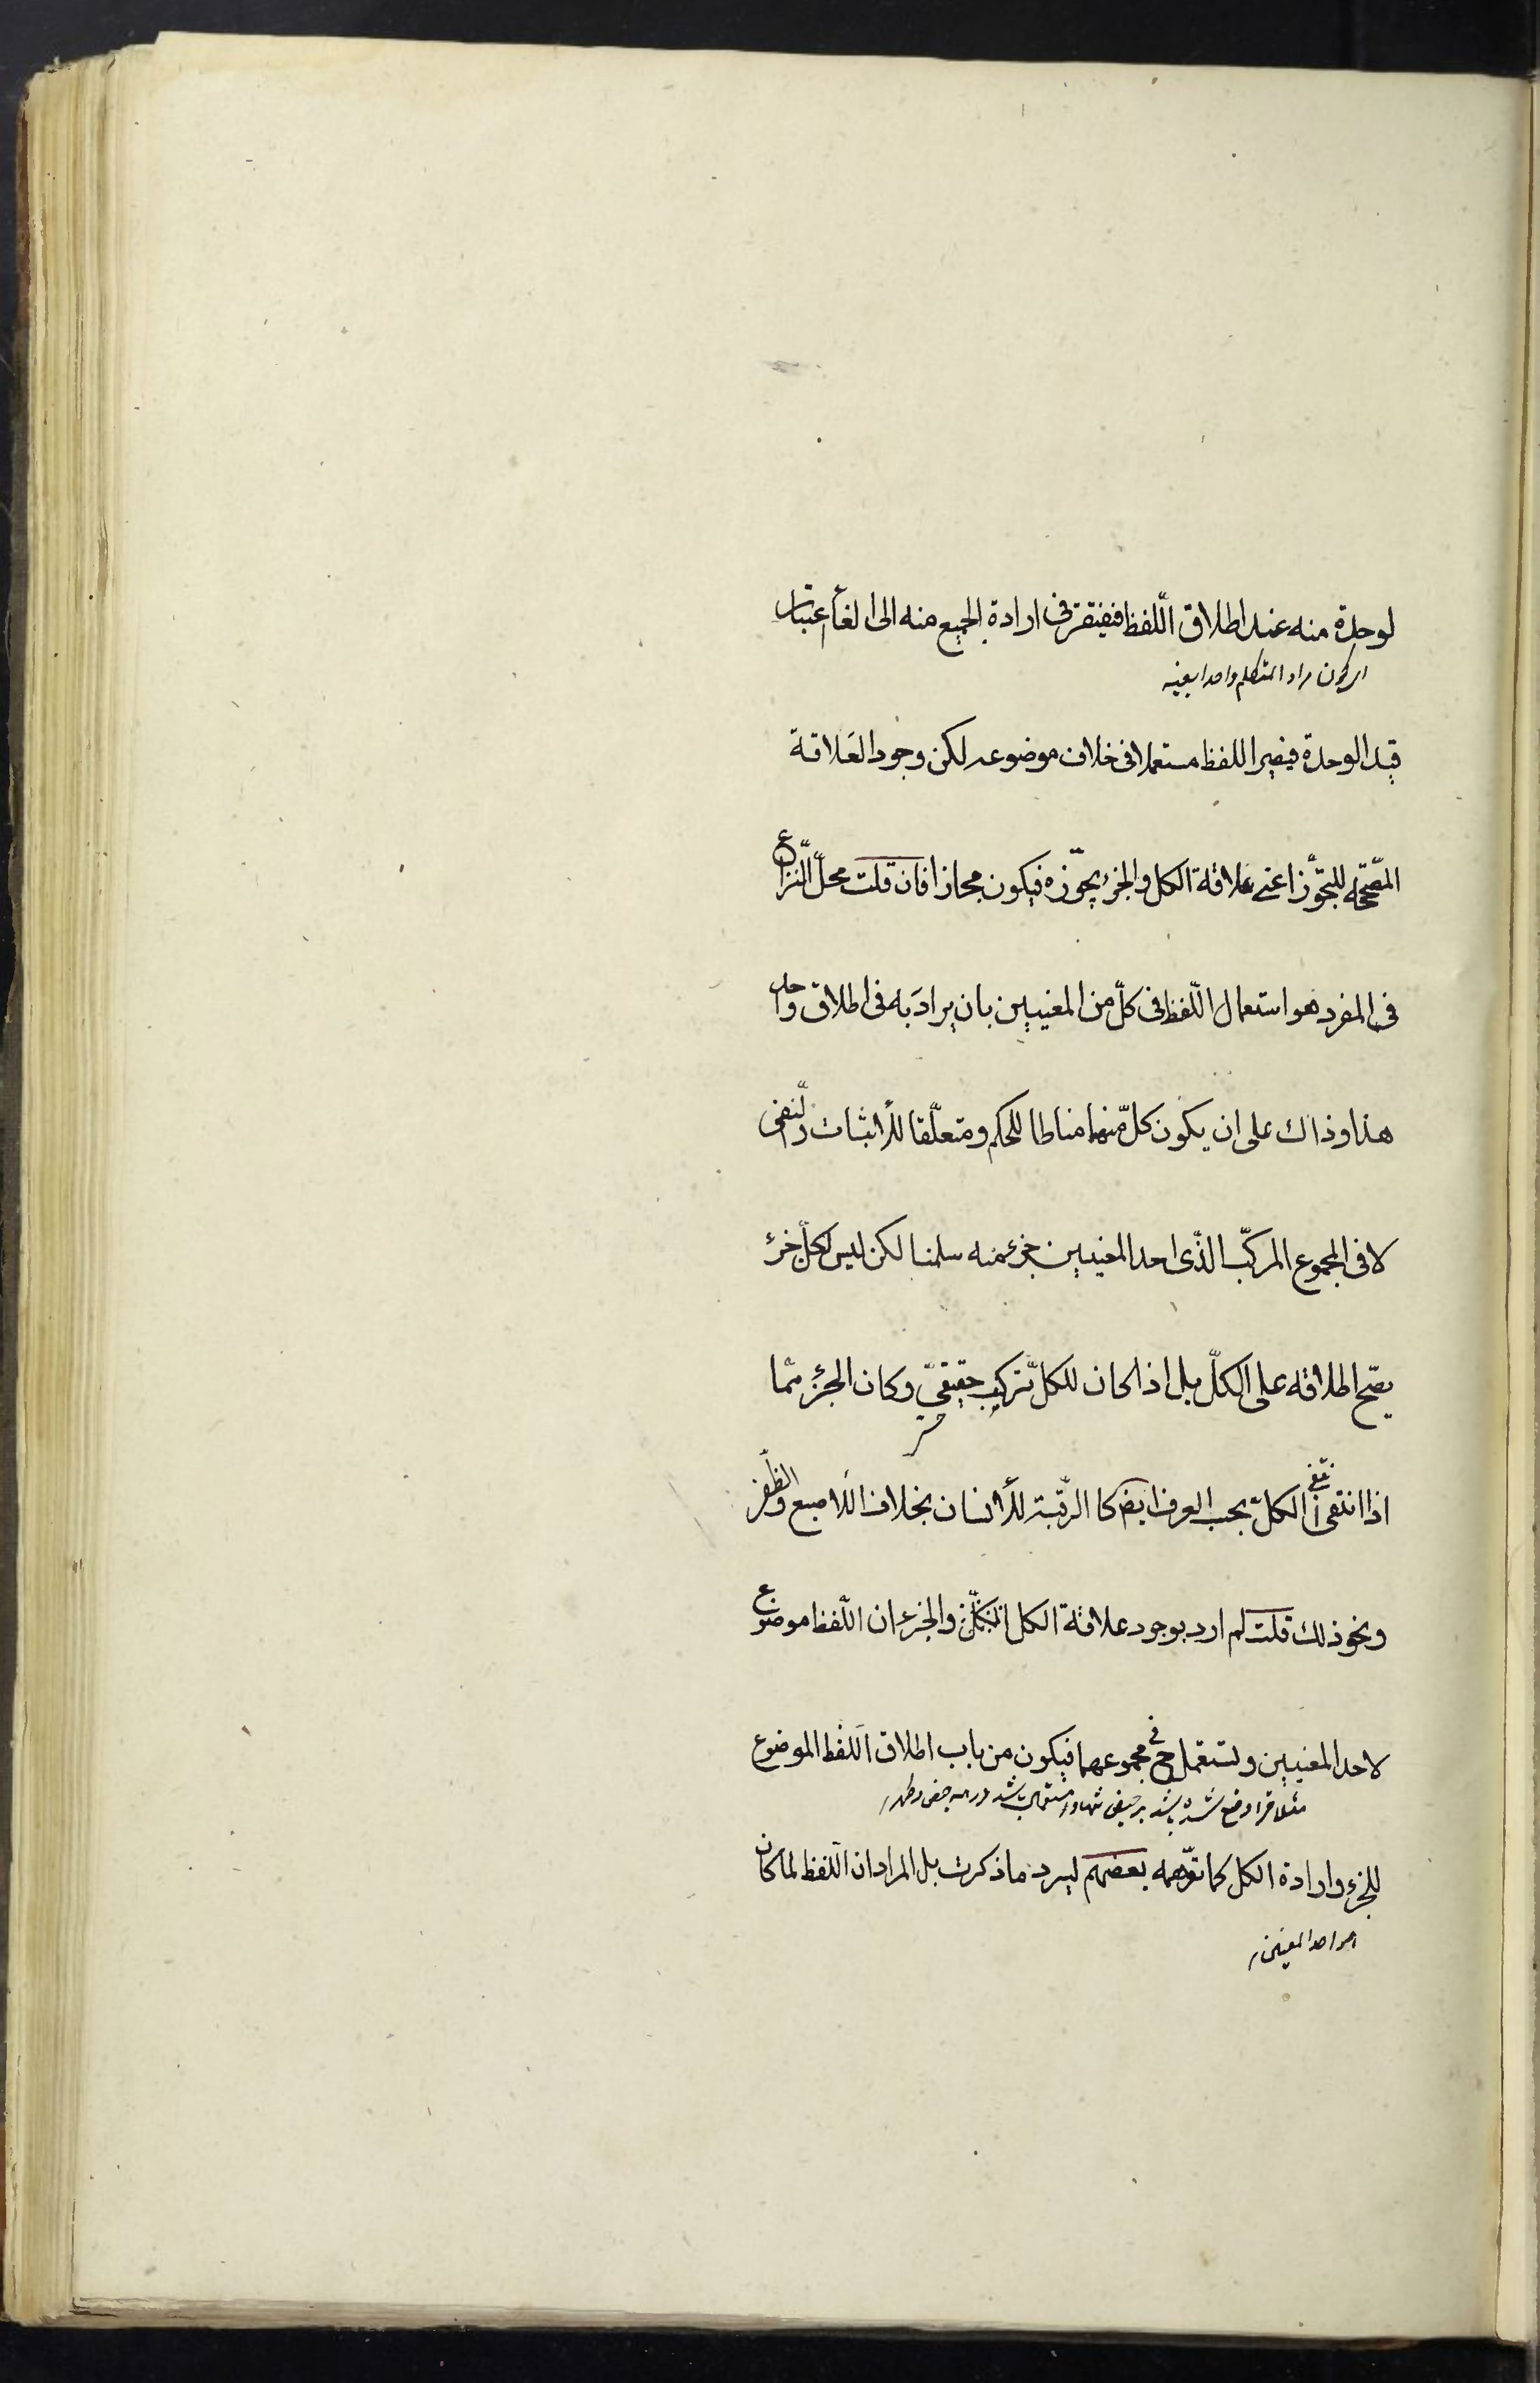 لوحدة منه عند اطلاق اللّفظ فيفتقر فى ارادة الجميع منه الى الغاء اعتبار
اى كون مراد المتكلم واحدا بعينه
قيد الوحدة فيصير اللفظ مستعملا فى خلاف موضوعه لكن وجود العَلاقة
المصّححة للتجوّز اعنى علاقة الكل و الجزء يجوّزه فيكون مجازا فان قلت محلّ النّزاع
فى المفرد هو استعمال اللّفظ فى كلّ من المعنيين بان يرادَ به فى اطلاق واحد
هذا وذاك على ان يكون كلّ منهما مناطا للحكم ومتعلّقا للأثبات والنّفى
لا فى المجموع المركّب الذّى احد المعنيين جزء منه سلمنا لكن ليس كلّ جزء
يصّح اطلاقه على الكلّ بل اذا كان للكلّ تركيب حقيقىّ وكان الجزء ممّا
اذا انتفى انتفى الكلّ بحسب العرف ايضا كا الرّقبة للأنسان بخلاف الأصبع والظّفر
ونحو ذلك قلت لم ارد بوجود علاقة الكل والجزء ان اللّفظ موضوع
لاحد المعنيين و لستعمل ح فى مجموعهما فيكون من باب اطلاق اللّفظ الموضوع
مثلا قرا وضع شده باشد بر حيض تنها و استعمال باشد در هم حيض و طهر
للجزء و ارادة الكل كما توّهمه بعضهم ليرد ما ذكرت بل المراد ان اللّفظ لما كان
احد المعنيين